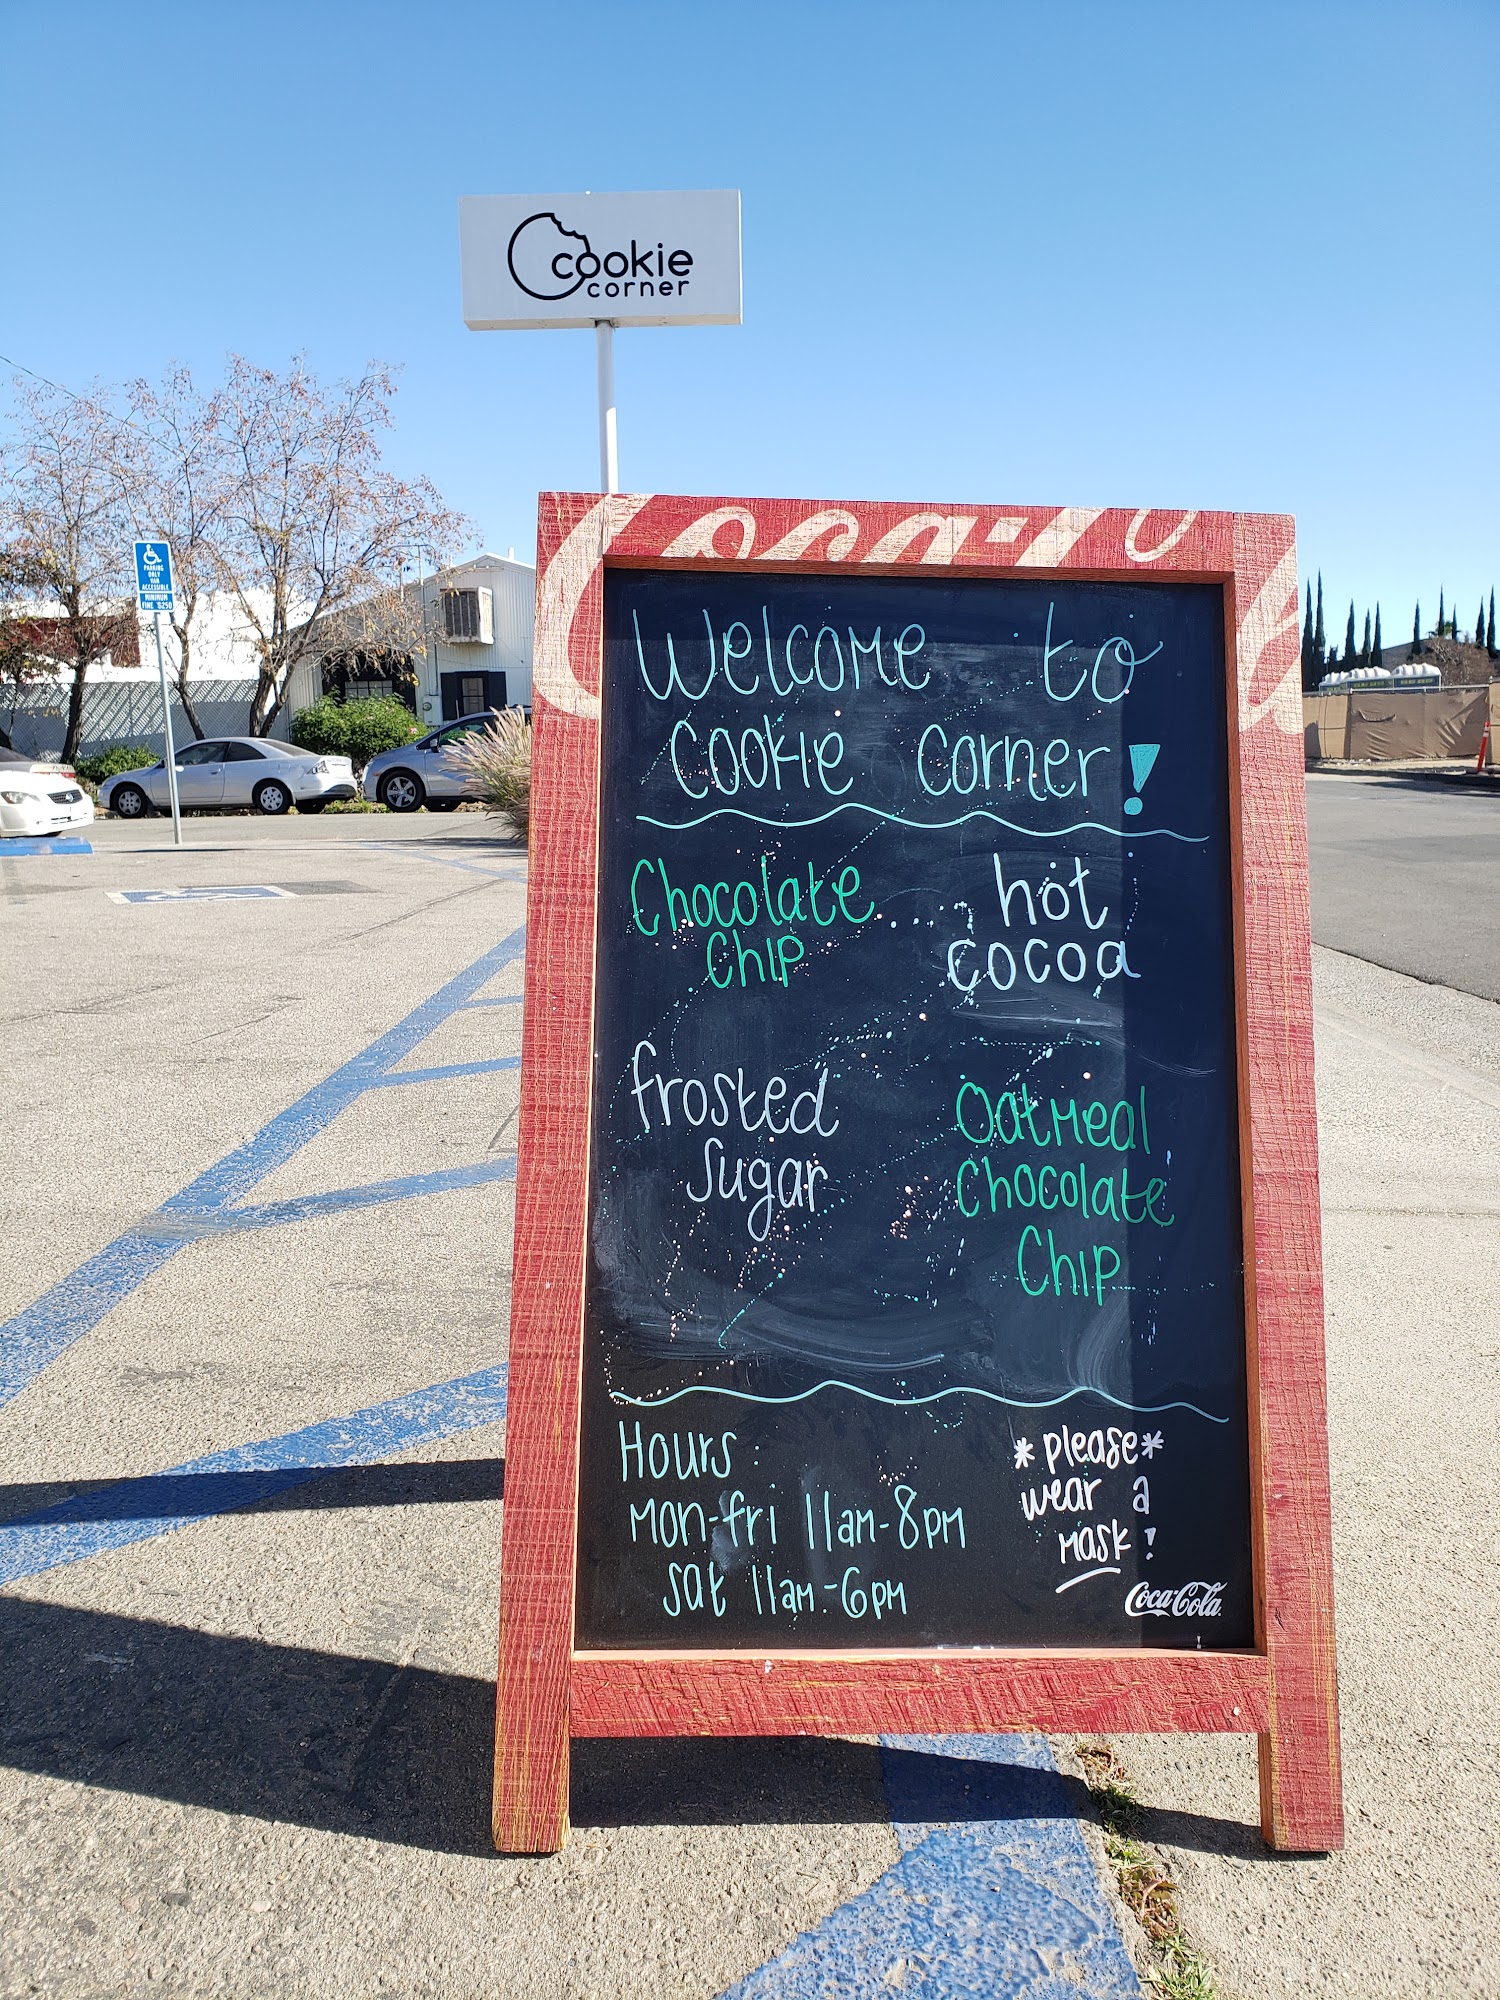 cookie
corner
PARKING
ONLY
VAN
ACCESSIBLE
MINIMUM
FINE $250
Coca-Cola
Welcome to
Cookie Corner!
Chocolate
Chip
hot
cocoa
frosted
Sugar
Oatmeal
Chocolate
Chip
Hours:
Mon-fri 11am-8pm
Sat 11am-6pm
*please*
wear a
mask!
Coca-Cola